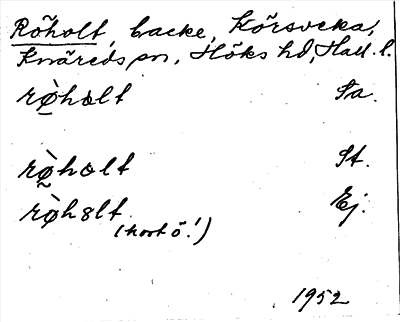 Röholt, backe, Körsveka,
Knäreds sn, Höks hd, Hall. l.
rø̀holt Sa.
rø̀holt St.
rø̀h8lt Ej.
(kort ö!)
1952